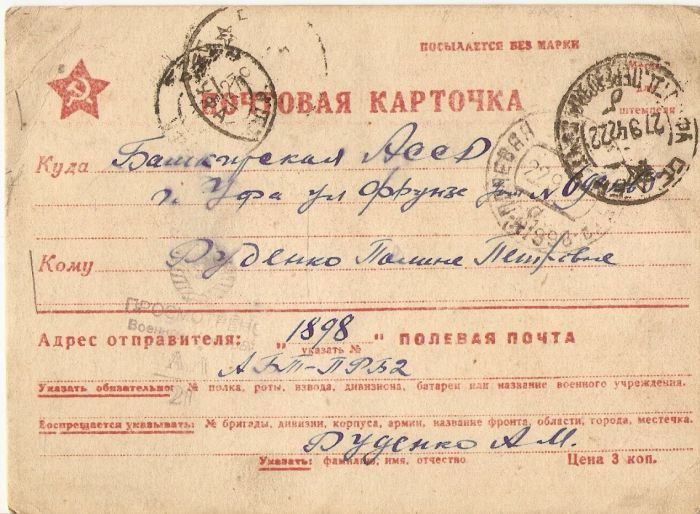 ПОСЫЛАЕТСЯ БЕЗ МАРКИ
ПОЧТОВАЯ КАРТОЧКА
штемпеля
21 9 42 22
Куда Башкирская АССР
г. Уфа ул Фрунзе
Кому Руденко Полине Петровне
ПРОСМОТРЕНО
Военной
Адрес отправителя: „1898" ПОЛЕВАЯ ПОЧТА
указать №
АБТ-ПРБ2
Указать обязательно: № полка, роты, взвода, дивизиона, батареи или название военного учреждения.
21
Воспрещается указывать: № бригады, дивизии, корпуса, армии, название фронта, области, города, местечка.
Руденко А.М.
Указать: фамилию, имя, отчество
Цена 3 коп.